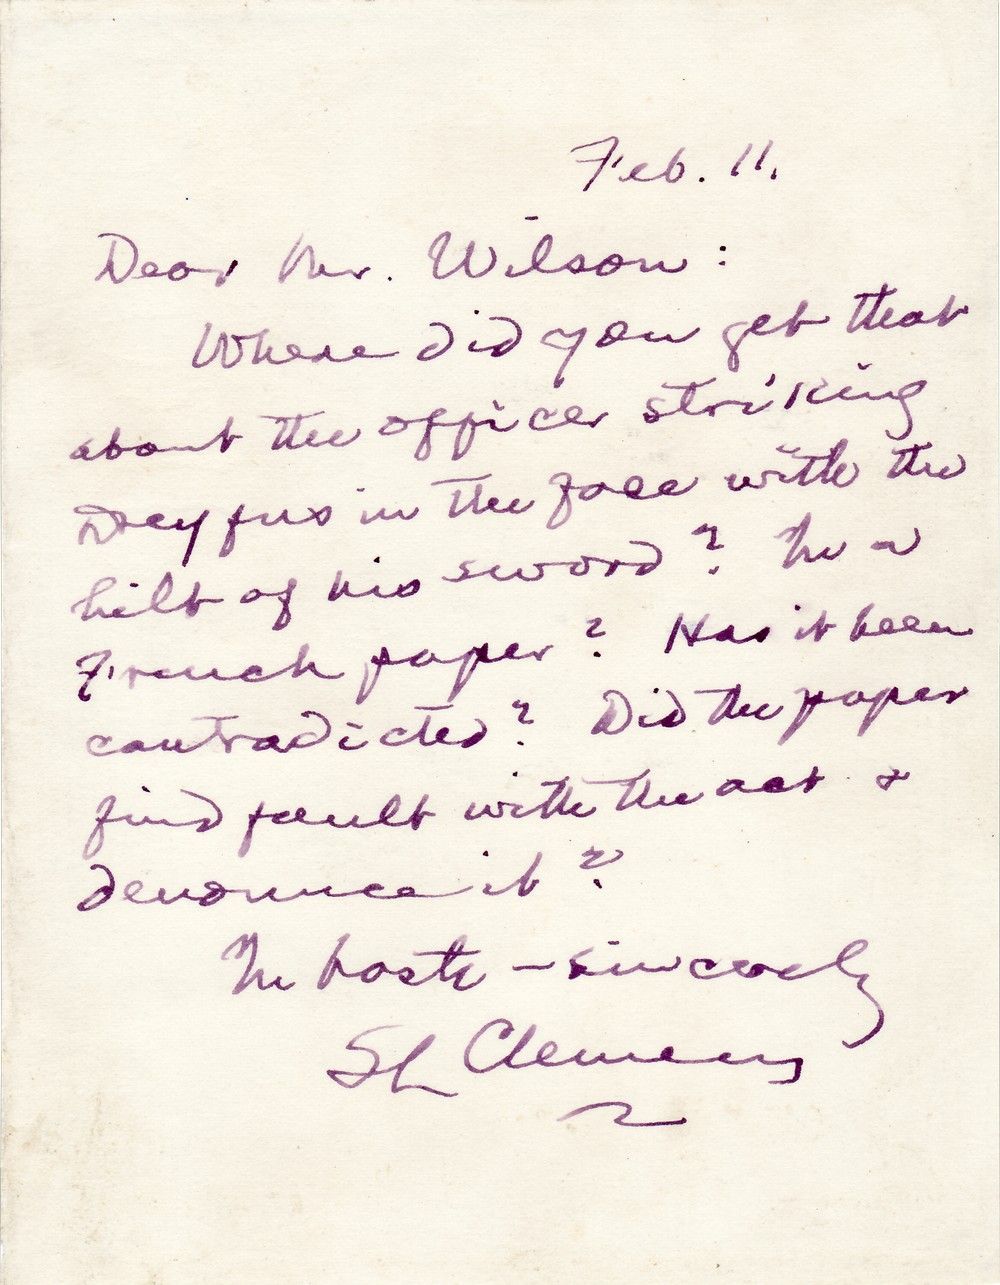 Feb. 11.
Dear Mr. Wilson:
Where did you get that
about the officer striking
Dreyfus in the face with the
hilt of his sword? In a
French paper? Has it been
contradicted? Did the paper
find fault with the act &
denounce it?
In haste – sincerely
SL Clemens